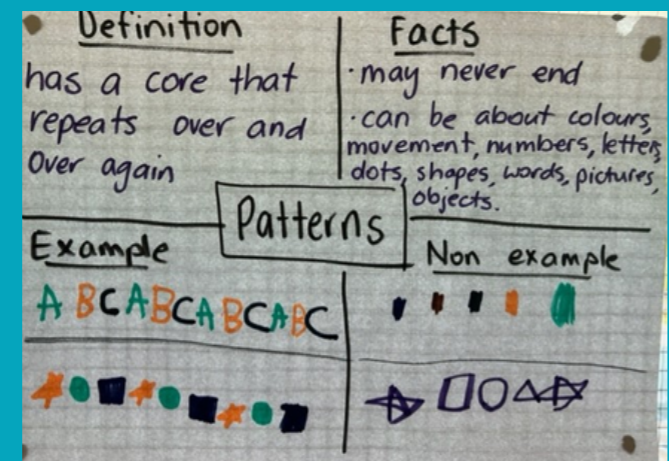 Definition
has a core that
repeats over and
over again
Facts
·may never end
·can be about colours,
movement, numbers, letters,
dots, shapes, words, pictures,
objects.
Patterns
Example
A B C A B C A B C A B C
Non example